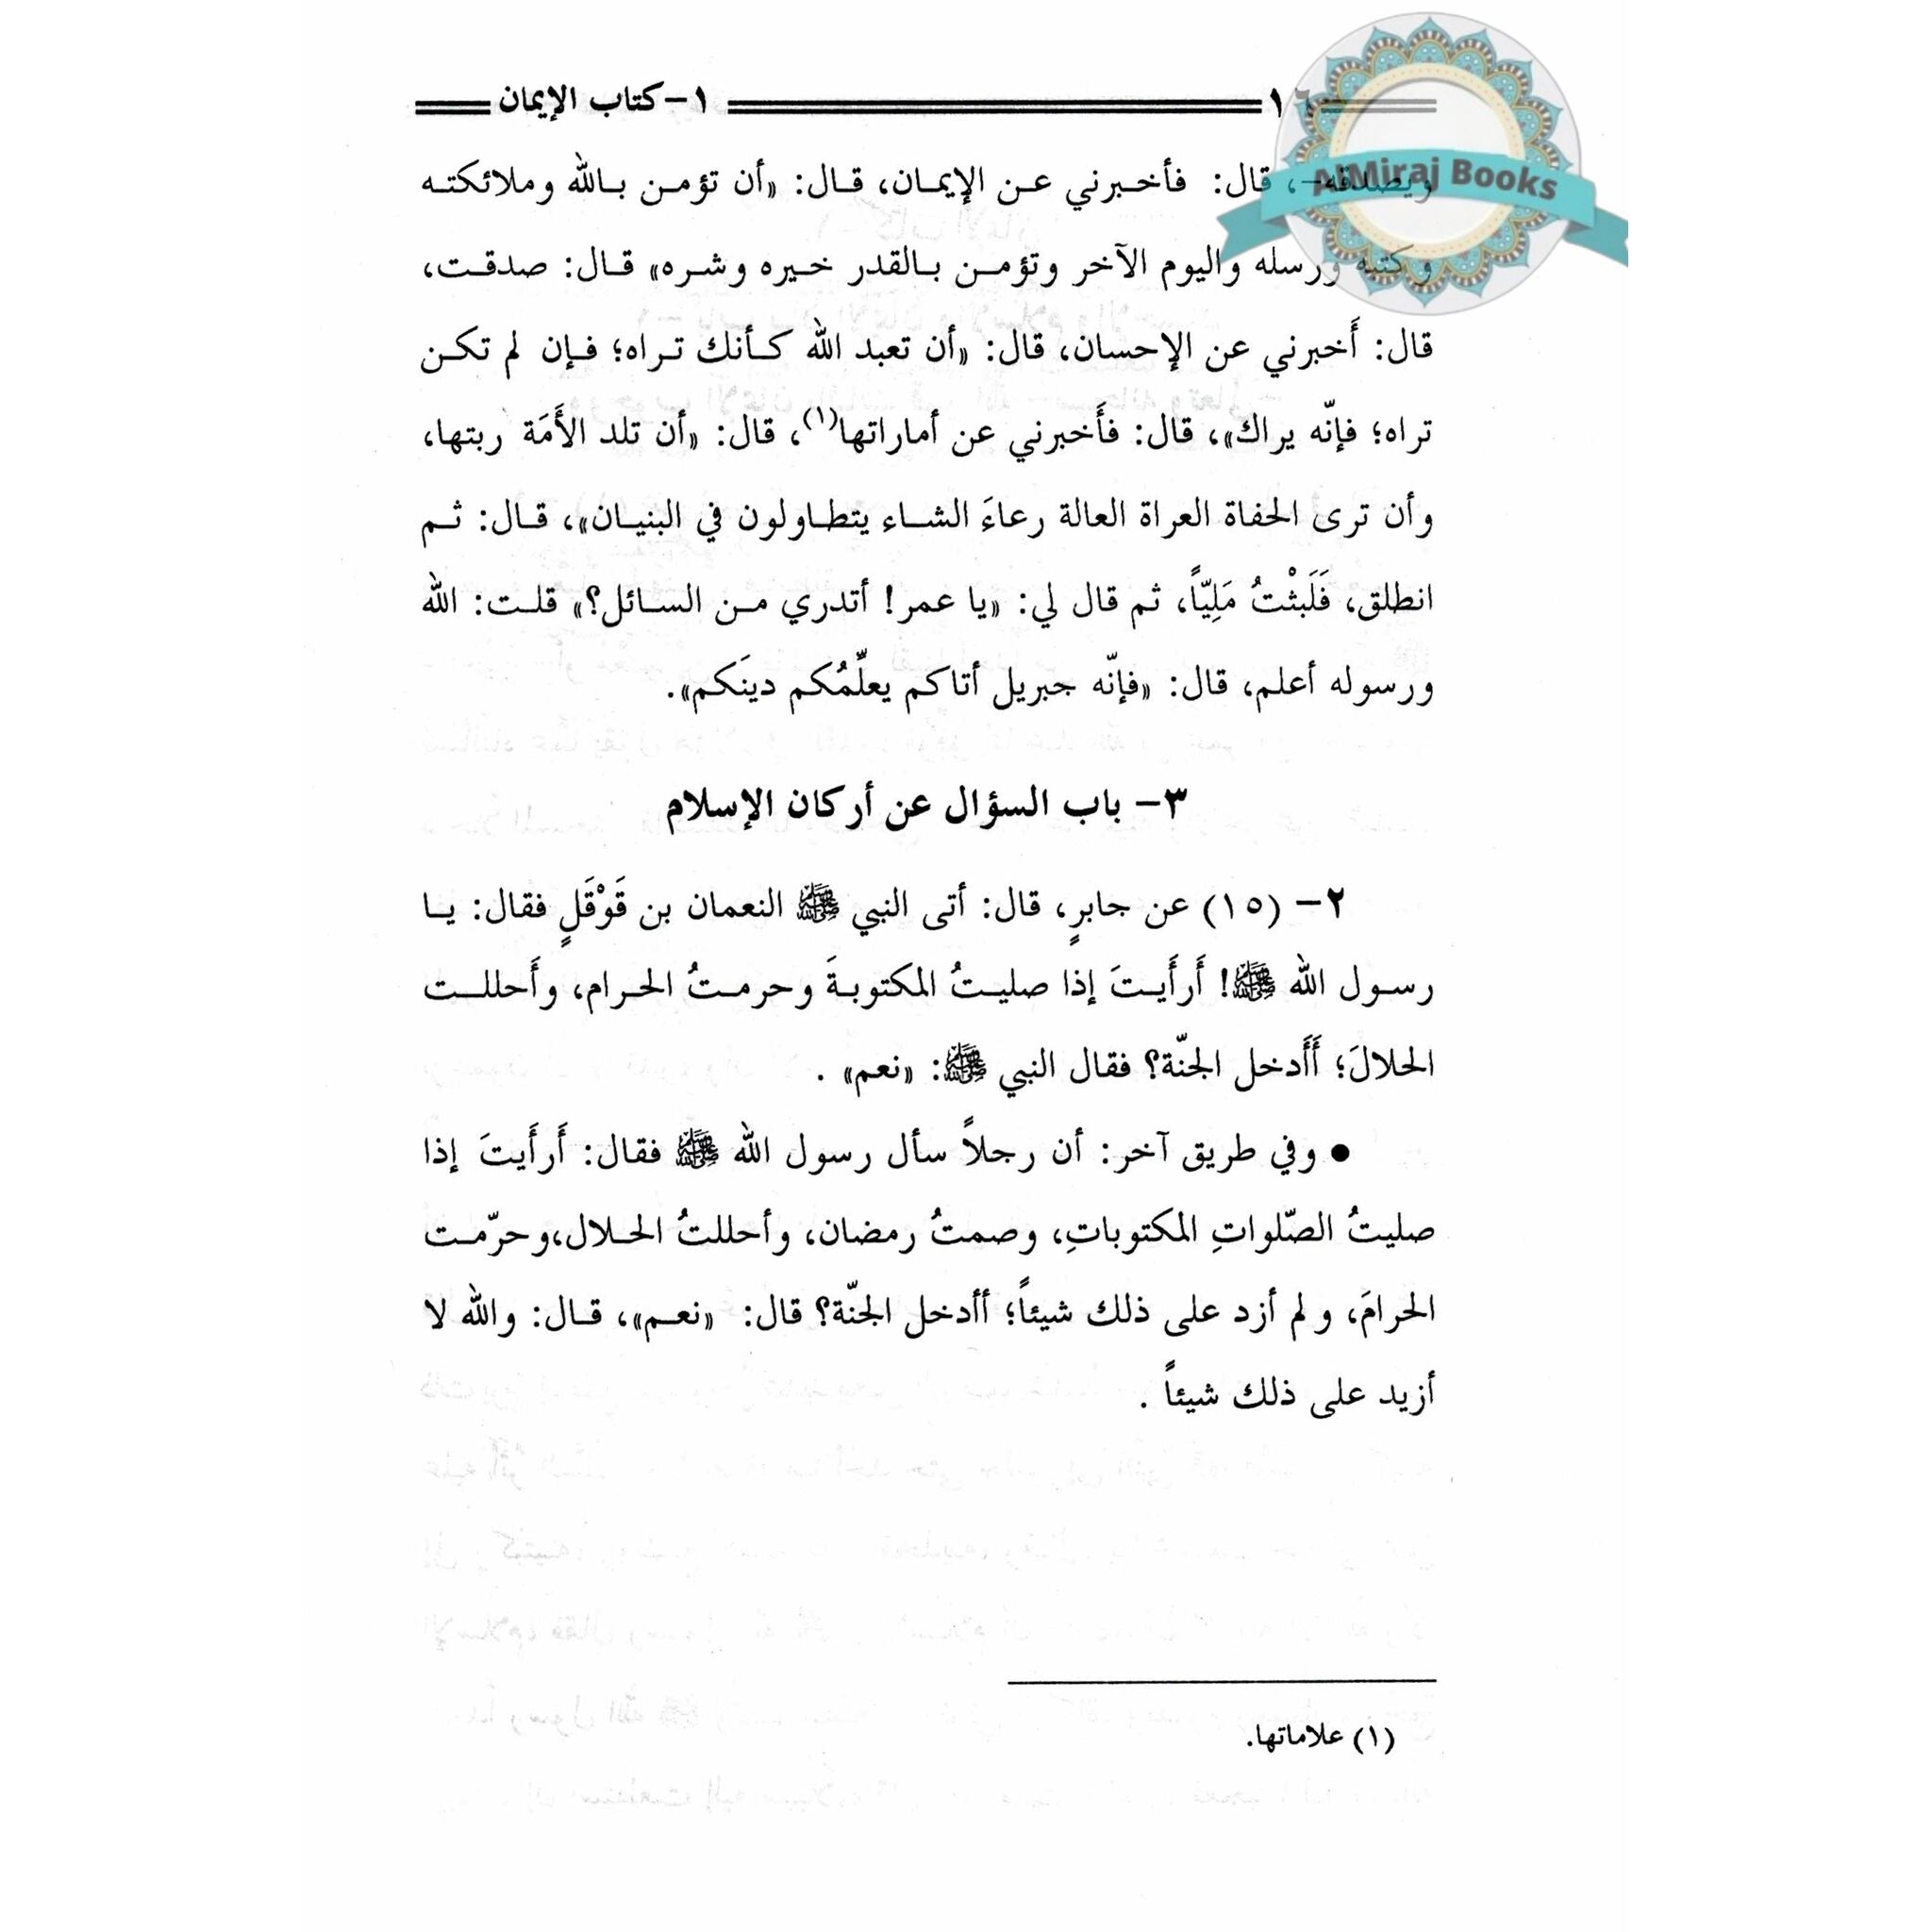 ١٦ ١- كتاب الإيمان
AlMiraj Books
ويصدقه-، قال: فأخبرني عن الإيمان، قال: «أن تؤمن بالله وملائكته
وكتبه ورسله واليوم الآخر وتؤمن بالقدر خيره وشره» قال: صدقت،
قال: أَخبرني عن الإحسان، قال: «أن تعبد الله كأنك تراه؛ فإن لم تكن
تراه؛ فإنّه يراك»، قال: فأَخبرني عن أماراتها(١)، قال: «أن تلد الأَمَة ربتها،
وأن ترى الحفاة العراة العالة رعاءَ الشاء يتطاولون في البنيان»، قال: ثم
انطلق، فَلَبثْتُ مَلِيّاً، ثم قال لي: «يا عمر! أتدري من السائل؟» قلت: الله
ورسوله أعلم، قال: «فإنّه جبريل أتاكم يعلِّمُكم دينَكم».
٣- باب السؤال عن أركان الإسلام
٢- (١٥) عن جابرٍ، قال: أتى النبي ﷺ النعمان بن قَوْقَلٍ فقال: يا
رسول الله ﷺ! أَرأَيتَ إذا صليتُ المكتوبةَ وحرمتُ الحرام، وأَحللت
الحلالَ؛ أَأَدخل الجنّة؟ فقال النبي ﷺ: «نعم» .
● وفي طريق آخر: أن رجلاً سأل رسول الله ﷺ فقال: أَرأَيتَ إذا
صليتُ الصّلواتِ المكتوباتِ، وصمتُ رمضان، وأحللتُ الحلال،وحرّمت
الحرامَ، ولم أزد على ذلك شيئاً؛ أأدخل الجنّة؟ قال: «نعم»، قال: والله لا
أزيد على ذلك شيئاً .
(١) علاماتها.